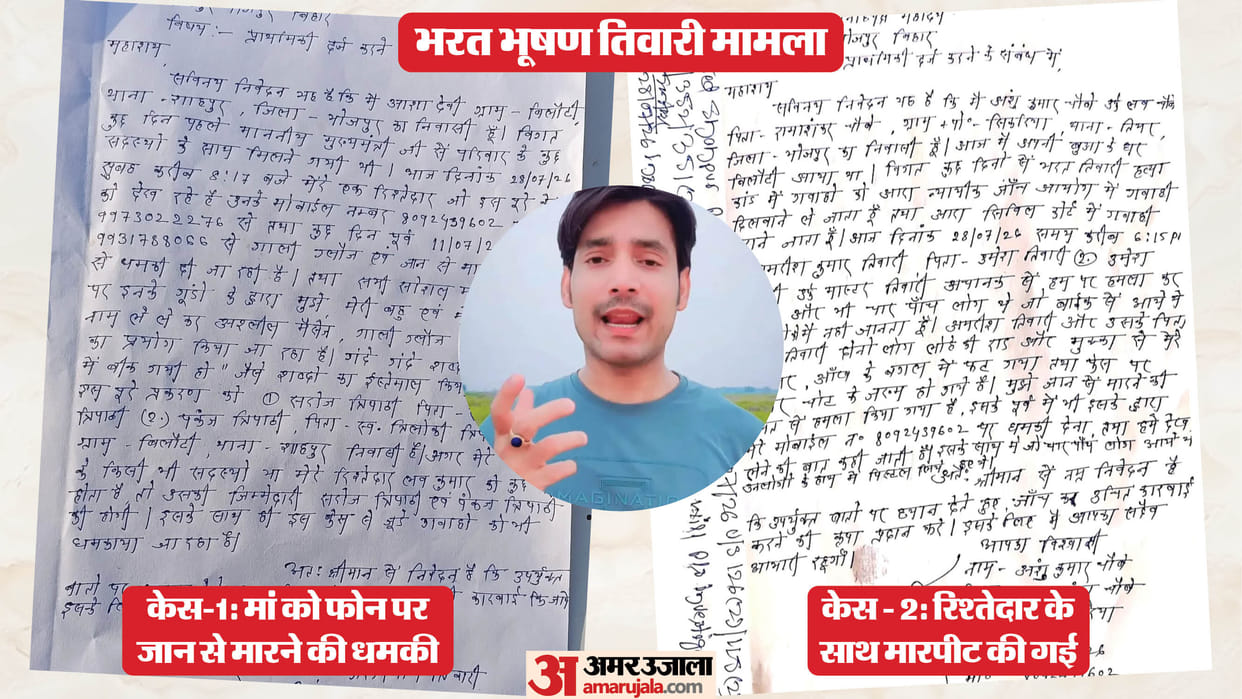 भरत भूषण तिवारी मामला
विषय:- प्राथमिकी दर्ज करने
महाशय,
सविनय निवेदन यह है कि मैं आशा देवी ग्राम- बिलौटी,
थाना- शाहपुर, जिला- भोजपुर का निवासी हूँ। विगत
कुछ दिन पहले माननीय मुख्यमंत्री जी से परिवार के कुछ
सदस्यो के साथ मिलने गयी थी। आज दिनांक 28/07/26
सुबह करीब 8:17 बजे मेरे एक रिश्तेदार जो इस पूरे
को देख रहे है उनके मोबाईल नम्बर 8092439602
9973022276 से तथा कुछ दिन पूर्व 11/07/2
9931788066 से गाली गलौज एवं जान से मा
से धमकी दी जा रही है। तथा सभी सोशल
पर इनके गूंडो के द्वारा मुझे, मेरी बहु एवं
नाम ले ले कर अश्लील मैसेज, गाली गलौज
का प्रयोग किया जा रहा है। गंदे गंदे शब्द
में बीक गयी हो" जैसे शब्दो का इस्तेमाल किया
इस पूरे प्रकरण को ① सरोज त्रिपाठी पिता-
त्रिपाठी (2.) पंकज त्रिपाठी, पिता- स्व. त्रिलोकी
ग्राम- बिलौटी, थाना- शाहपुर निवासी है। अगर मेरे
के किसी भी सदस्यो या मेरे रिश्तेदार लव कुमार को कुछ
होता है, तो उसकी जिम्मेदारी सरोज त्रिपाठी एवं पंकज त्रिपाठी
की होगी। इसके साथ ही इस केस से जूड़े गवाहो को भी
धमकाया जा रहा है।
अतः श्रीमान से निवेदन है कि उपर्युक्त
बातो पर
कारवाई कि जाये
केस-1: मां को फोन पर
जान से मारने की धमकी
भोजपुर बिहार
प्राथमिकी दर्ज करने के संबंध में,
महाशय
सविनय निवेदन यह है कि मैं अंशु कुमार चौबे उर्फ लव चौबे
पिता- रामाशंकर चौबे, ग्राम + पो०- सिकरिया, थाना- तियर,
जिला- भोजपुर का निवासी हूँ। आज मैं अपनी बुआ के घर
बिलौटी आया था। विगत कुछ दिनों से भरत तिवारी हत्या
कांड में गवाहो को आरा न्यायीक जाँच आयोग में गवाही
दिलवाने ले जाता हूँ तथा आरा सिविल कोर्ट में गवाही
जाता हूँ। आज दिनांक 28/07/26 समय करीब 6:15 PM
अमरीश कुमार तिवारी पिता- उमेश तिवारी ② उमेश
उर्फ मास्टर तिवारी अचानक से हम पर हमला कर
और भी चार पाँच लोग थे जो बाईक से आये थे
मैं नही जानता हूँ। अमरीश तिवारी और उसके पिता
तिवारी दोनो लोग लोहे की राड और मुक्का से मेरे
आँख के बगल में फट गया तथा फेस पर
चोट के जख्म हो गये है। मुझे जान से मारने की
से हमला किया गया है, इसके पूर्व में भी इसके द्वारा
मेरे मोबाईल न० 8092439602 पर धमकी देना, तथा हमें देख
लेने की बात कही जाती है। इसके साथ में जो चार पाँच लोग आये थे
उनलोगो के हाथ में पिस्टल लिये हुए थे।
अतः श्रीमान से नम्र निवेदन है
कि उपर्युक्त बातो पर ध्यान देते हुए, जाँच कर उचित कारवाई
करने की कृपा प्रदान करे। इसके लिए मैं आपका सदैव
आभारी रहूँगा।
आपका विश्वासी
नाम- अंशु कुमार चौबे
केस - 2: रिश्तेदार के
साथ मारपीट की गई
अ अमर उजाला
amarujala.com